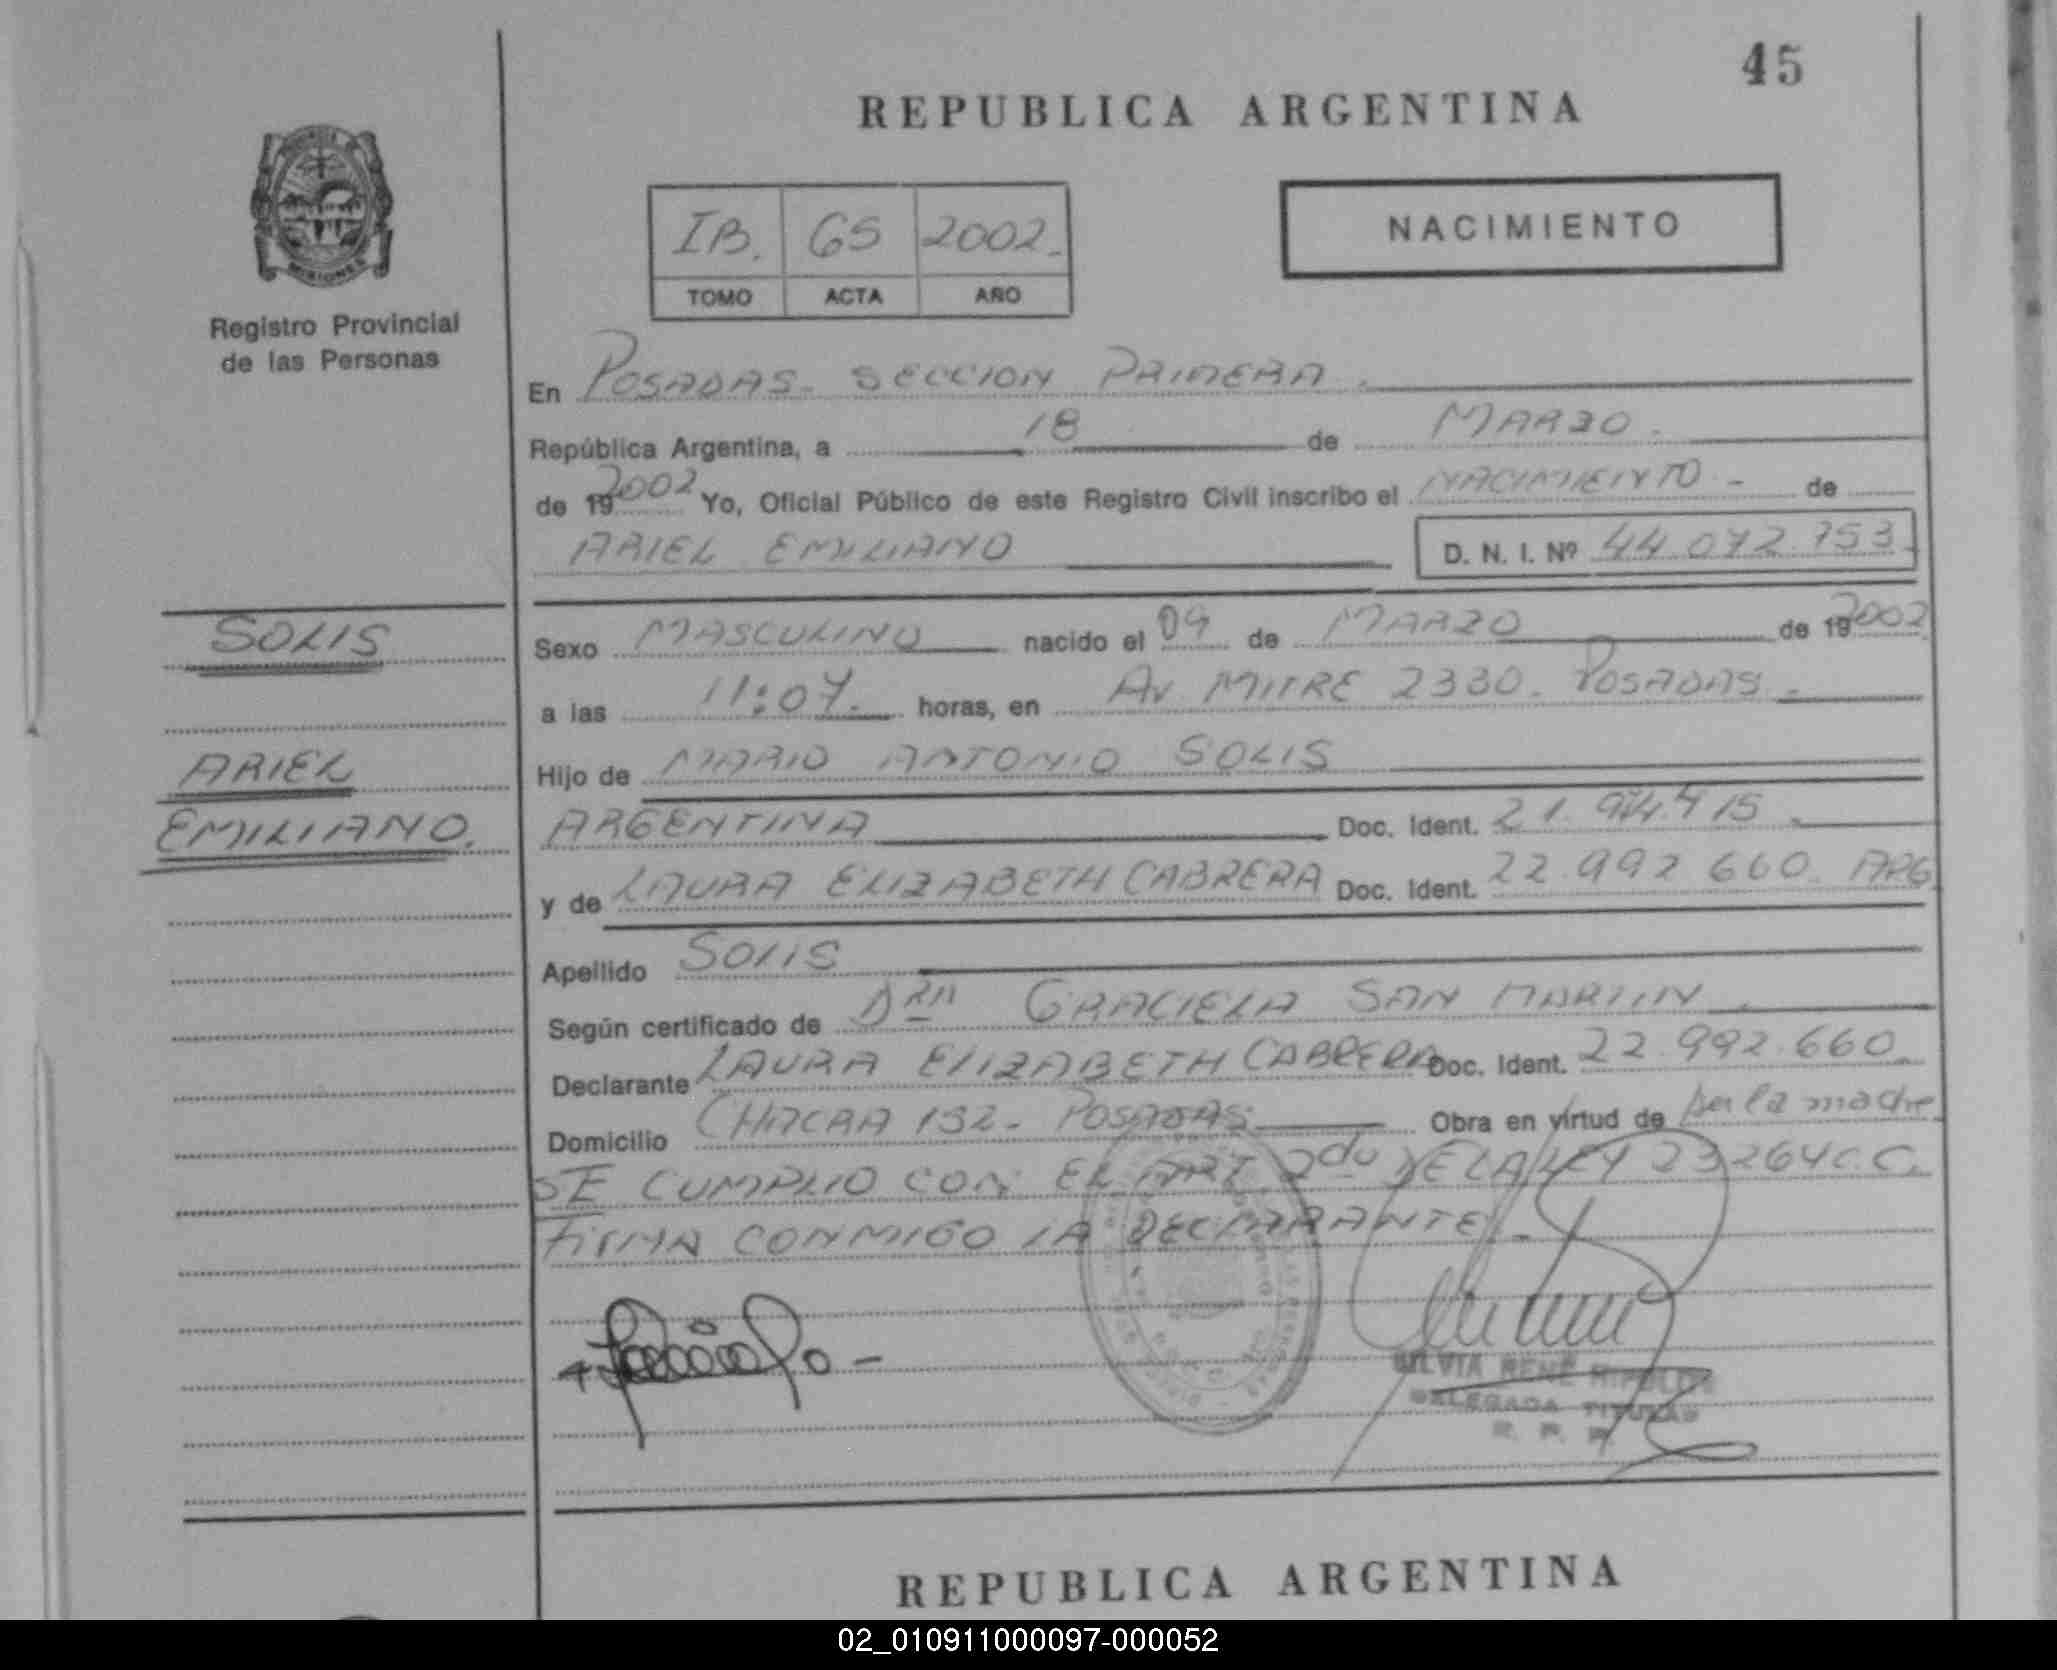 45
REPUBLICA ARGENTINA
MISIONES
Registro Provincial
de las Personas
IB. 65 2002.
TOMO ACTA AÑO
NACIMIENTO
En POSADAS. SECCION PRIMERA.
República Argentina, a 18 de MARZO.
de 19 2002 Yo, Oficial Público de este Registro Civil inscribo el NACIMIENTO - de
ARIEL EMILIANO D. N. I. Nº 44.072.753.
SOLIS
ARIEL
EMILIANO.
Sexo MASCULINO nacido el 09 de MARZO de 19 2002
a las 11:07. horas, en AV MITRE 2330. POSADAS.
Hijo de MARIO ANTONIO SOLIS
ARGENTINA Doc. Ident. 21.974.715.
y de LAURA ELIZABETH CABRERA Doc. Ident. 22.992 660. ARG
Apellido SOLIS
Según certificado de DRA GRACIELA SAN MARTIN.
Declarante LAURA ELIZABETH CABRERA Doc. Ident. 22.992.660
Domicilio CHACRA 132. POSADAS Obra en virtud de ser la madre
SE CUMPLIO CON EL ART 2do DE LA LEY 23264 C.C.
FIRMA CONMIGO LA DECLARANTE. -
SILVIA RENE
DELEGADA TITULAR
R. P. P.
REPUBLICA ARGENTINA
02_010911000097-000052